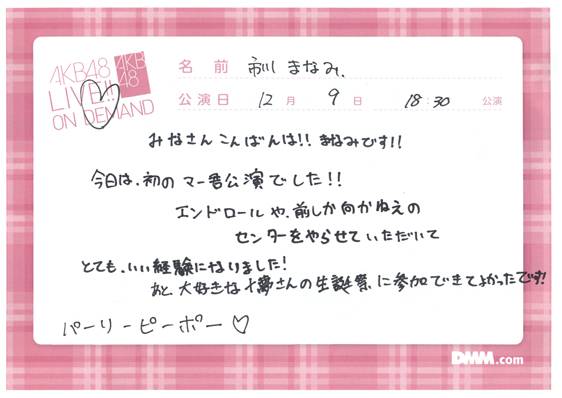 AKB48
LIVE!!
ON DEMAND
AKB
48
名前 市川まなみ、
公演日 12月 9日 18:30 公演
みなさんこんばんは!! まなみです!!
今日は、初の マー君公演でした!!
エンドロールや、前しか向かねえの
センターをやらせていただいて
とても、いい経験になりました!
あと、大好きな十夢さんの生誕祭に参加できてよかったです!
パーリーピーポー♡
DMM.com